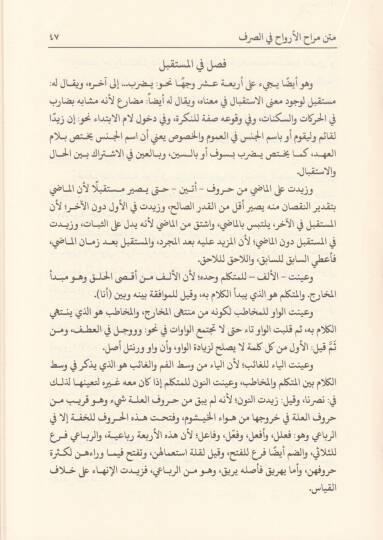 متن مراح الأرواح في الصرف ٤٧
فصل في المستقبل
وهو أيضًا يجيء على أربعة عشر وجهًا نحو: يضرب... إلى آخره، ويقال له:
مستقبل لوجود معنى الاستقبال في معناه، ويقال له أيضاً: مضارع لأنه مشابه بضارب
في الحركات والسكنات، وفي وقوعه صفة للنكرة، وفي دخول لام الابتداء نحو: إن زيدًا
لقائم وليقوم أو باسم الجنس في العموم والخصوص يعني أن اسم الجنس يختص بلام
العهد، كما يختص يضرب بسوف أو بالسين، وبالعين في الاشتراك بين الحال
والاستقبال.
وزيدت على الماضي من حروف - أتين - حتى يصير مستقبلًا لأن الماضي
بتقدير النقصان منه يصير أقل من القدر الصالح، وزيدت في الأول دون الآخر؛ لأن
المستقبل في الآخر، يلتبس بالماضي، واشتق من الماضي لأنه يدل على الثبات، وزيدت
في المستقبل دون الماضي؛ لأن المزيد عليه بعد المجرد، والمستقبل بعد زمان الماضي،
فأعطي السابق للسابق، واللاحق للاحق.
وعينت - الألف - للمتكلم وحده؛ لأن الألف من أقصى الحلق وهو مبدأ
المخارج، والمتكلم هو الذي يبدأ الكلام به، وقيل للموافقة بينه وبين (أنا).
وعينت الواو للمخاطب لكونه من منتهى المخارج، والمخاطب هو الذي ينتهي
الكلام به، ثم قلبت الواو تاء حتى لا تجتمع الواوات في نحو: وووجل في العطف، ومن
ثَمَّ قيل: الأول من كل كلمة لا يصلح لزيادة الواو، وأن واو ورنتل أصل.
وعينت الياء للغائب؛ لأن الياء من وسط الفم والغائب هو الذي يذكر في وسط
الكلام بين المتكلم والمخاطب، وعينت النون للمتكلم إذا كان معه غيره لتعينها لذلك
في: نصرنا، وقيل: زيدت النون؛ لأنه لم يبق من حروف العلة شيء وهو قريب من
حروف العلة في خروجها من هواء الخيشوم، وفتحت هذه الحروف للخفة إلا في
الرباعي وهو: فعلل، وأفعل، وفعّل، وفاعل؛ لأن هذه الأربعة رباعية، والرباعي فرع
للثلاثي، والضم أيضًا فرع للفتح، وقيل لقلة استعمالهن، وتفتح فيما وراءهن لكثرة
حروفهن، وأما يهريق فأصله يريق، وهو من الرباعي، فزيدت الهاء على خلاف
القياس.